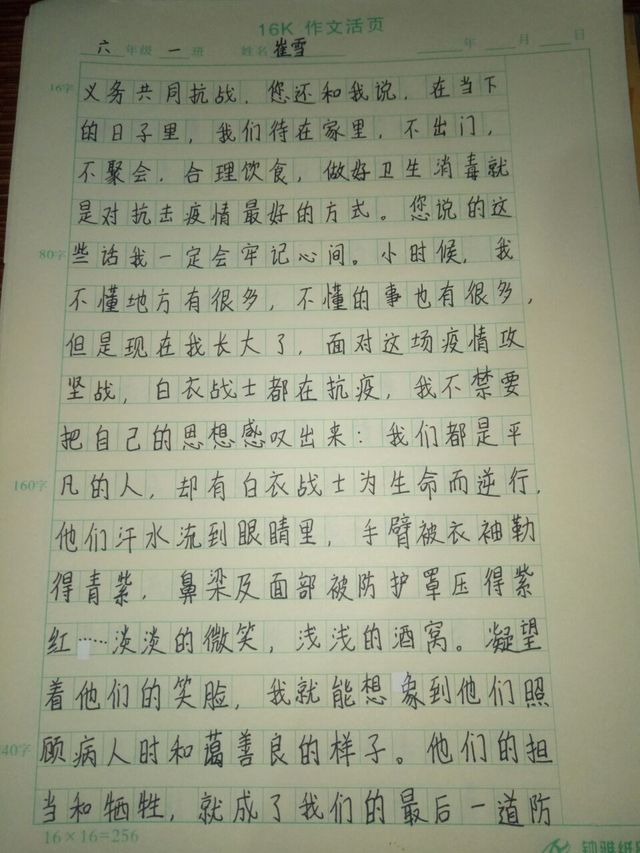 16K 作文活页
六 年级 一 班 姓名 崔雪 年 月 日
16字 义务共同抗战，您还和我说，在当下
的日子里，我们待在家里，不出门，
不聚会，合理饮食，做好卫生消毒就
是对抗击疫情最好的方式。您说的这
80字 些话我一定会牢记心间。小时候，我
不懂地方有很多，不懂的事也有很多，
但是现在我长大了，面对这场疫情攻
坚战，白衣战士都在抗疫，我不禁要
把自己的思想感叹出来：我们都是平
160字 凡的人，却有白衣战士为生命而逆行，
他们汗水流到眼睛里，手臂被衣袖勒
得青紫，鼻梁及面部被防护罩压得紫
红……淡淡的微笑，浅浅的酒窝。凝望
着他们的笑脸，我就能想象到他们照
40字 顾病人时和蔼善良的样子。他们的担
当和牺牲，就成了我们的最后一道防
16×16=256